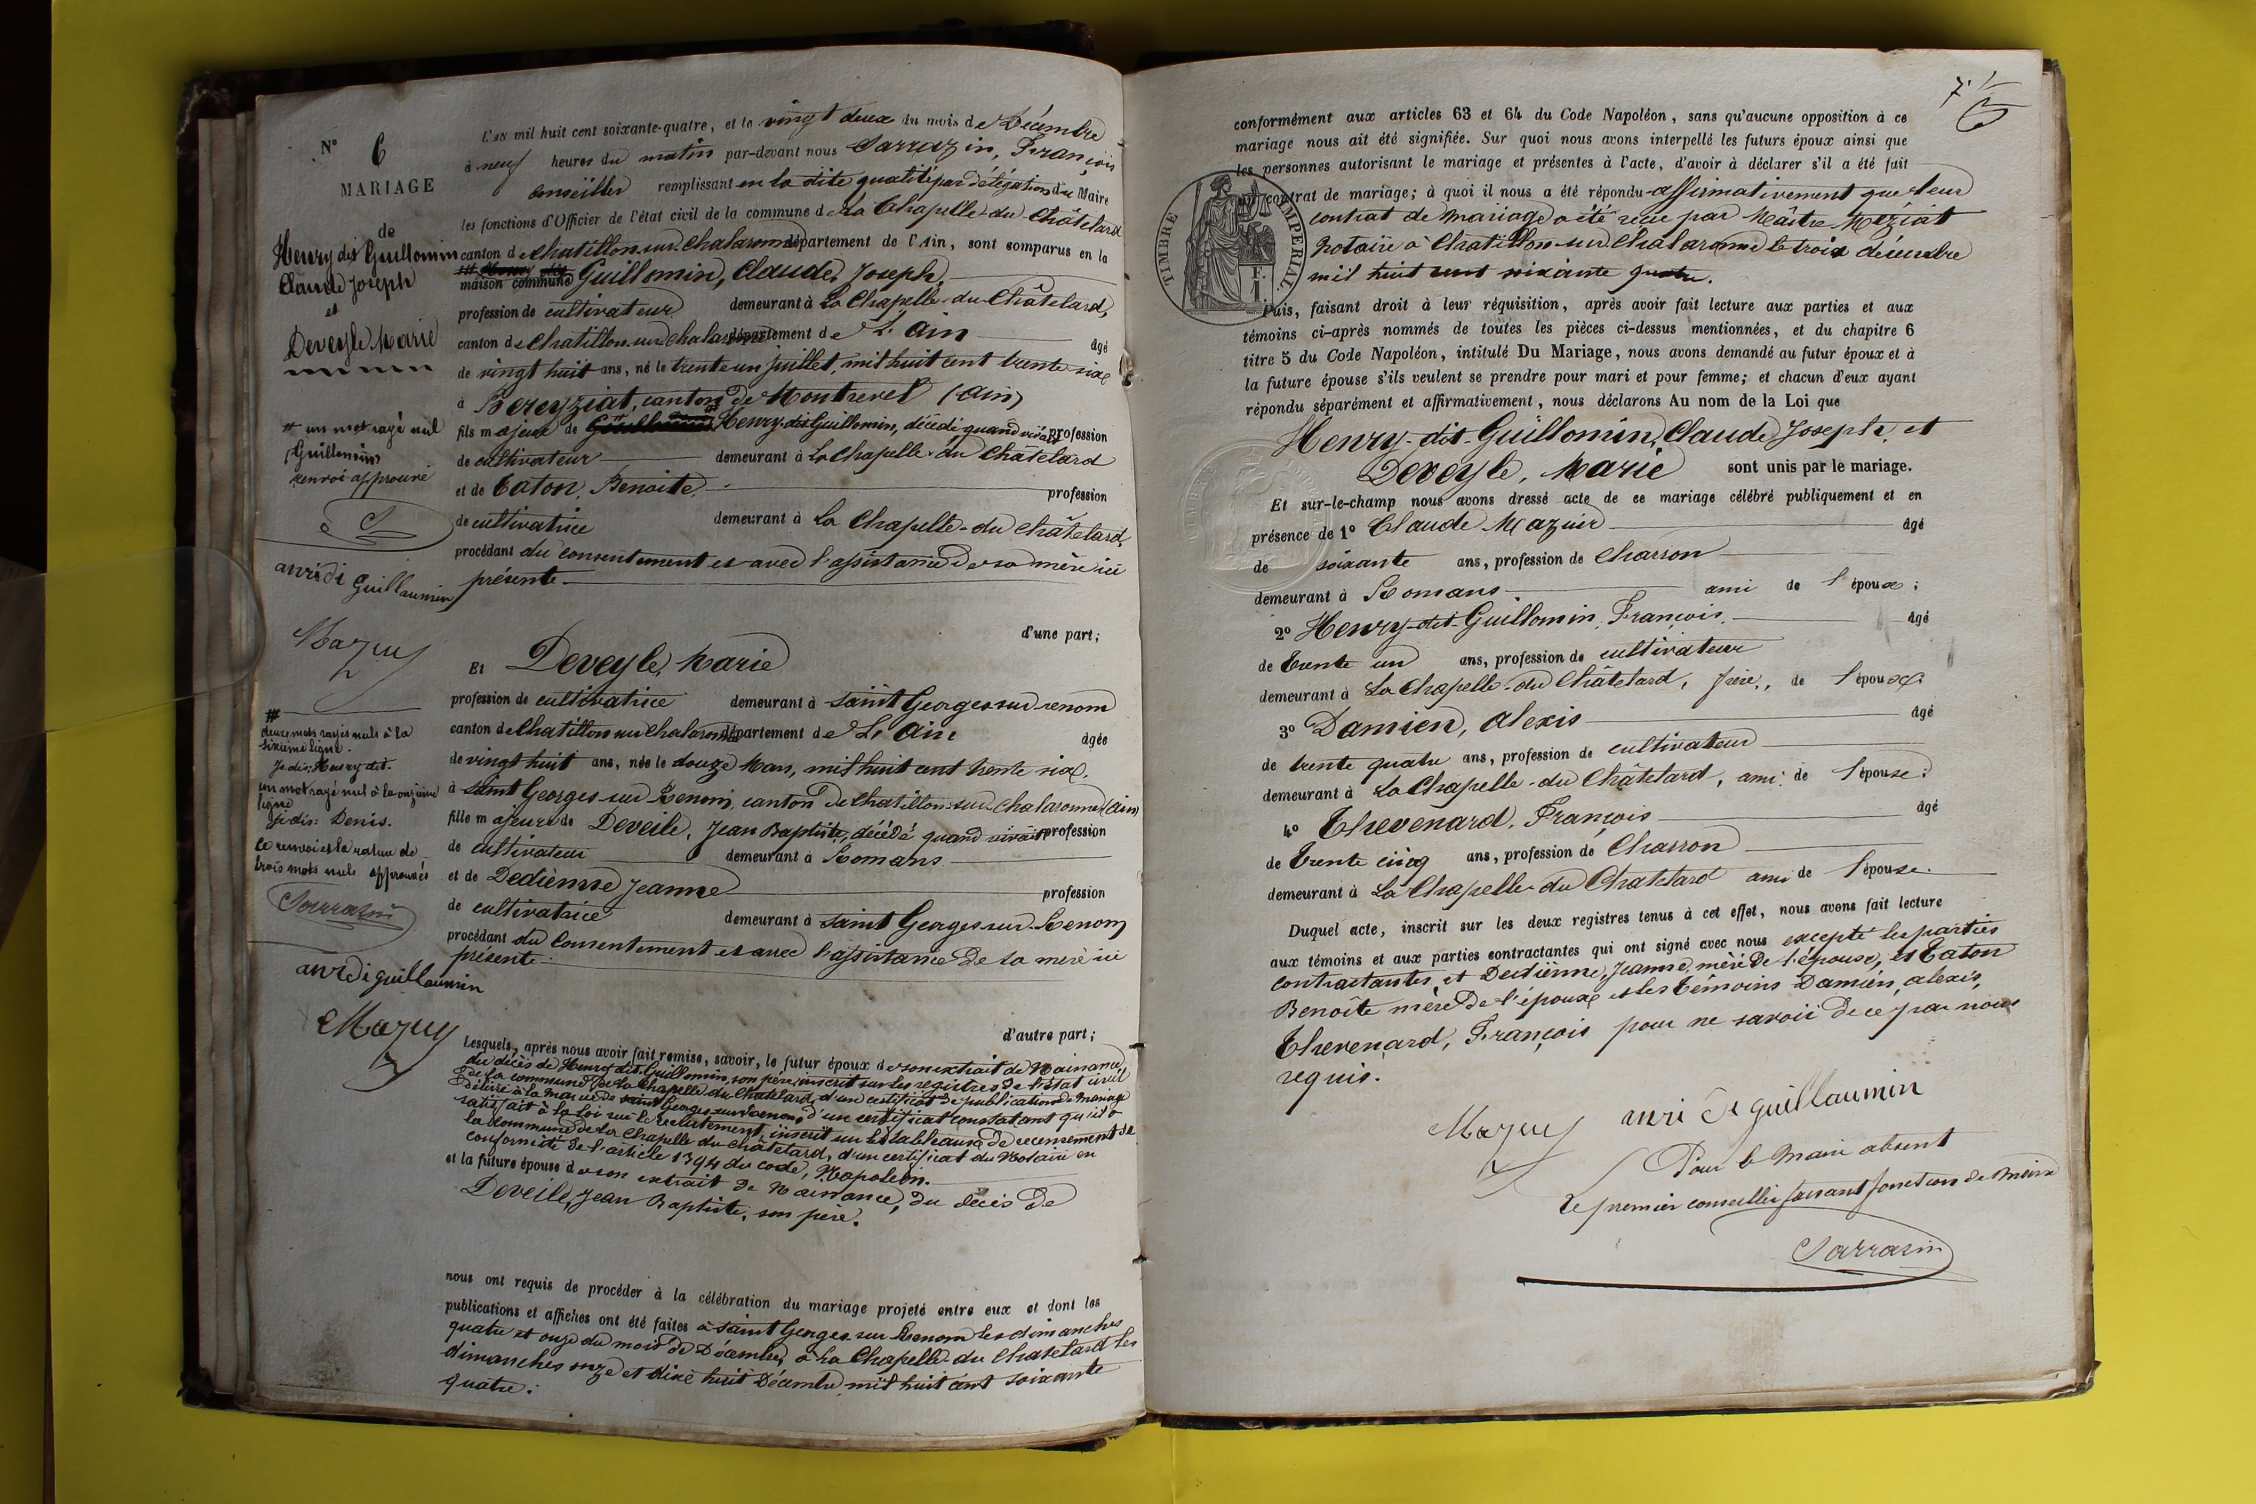 N° 6
MARIAGE
de
Henry dit Guillomin
Claude Joseph
et
Deveyle Marie
# un mot rayé nul
(Guillemin)
renvoi approuvé
anri di Guillaumin
Mazuy
#
deux mots rayés nuls à la
sixième ligne.
Je dis: Henry dit.
un mot rayé nul à la onzième
ligne
Je dis: Denis.
le renvoi et la rature de
trois mots nuls approuvés
Sarrasin
anri di guillaumin
Mazuy
L'an mil huit cent soixante-quatre, et le vingt deux du mois de Décembre
à neuf heures du matin par-devant nous Sarrazin, François
conseiller remplissant en la dite qualité par délégation du Maire
les fonctions d'Officier de l'état civil de la commune de La Chapelle-du-Châtelard
canton de Chatillon-sur-Chalaronne département de l'Ain, sont comparus en la
maison commune Guillomin, Claude, Joseph,
profession de cultivateur demeurant à La Chapelle-du-Châtelard,
canton de Chatillon-sur-Chalaronne département de L'Ain âgé
de vingt huit ans, né le trente un juillet, mil huit cent trente six
à Bereyziat, canton de Montrevel (Ain)
fils majeur de Henry-dit-Guillomin, décédé quand vivait profession
de cultivateur demeurant à La Chapelle-du Chatelard
et de Caton, Benoite profession
de cultivatrice demeurant à La Chapelle-du Châtelard,
procédant du consentement et avec l'assistance de sa mère ici
présente
d'une part;
Et Deveyle, Marie
profession de cultivatrice demeurant à saint Georges sur renom
canton de Chatillon sur Chalaronne département de L'Ain âgée
de vingt huit ans, née le douze Mars, mil huit cent trente six.
à saint Georges-sur Renom, canton de Chatillon-sur-Chalaronne (Ain)
fille majeure de Deveile, Jean Baptiste, décédé quand vivait profession
de cultivateur demeurant à Romans
et de Dedienne Jeanne profession
de cultivatrice demeurant à saint Georges-sur-Renom
procédant du Consentement et avec l'assistance de sa mère ici
présente.
d'autre part;
Lesquels, après nous avoir fait remise, savoir, le futur époux de son extrait de Naissance,
du décès de Henry-dit-Guillomin, son père, inscrit sur les registres de l'état civil
de la commune de La Chapelle du Chatelard, d'un certificat de publication de Mariage
délivré à la Mairie de saint Georges sur Renom, d'un certificat constatant qu'il a
satisfait à la loi sur le recrutement, inscrit sur les tableaux de recensement de
la commune de La Chapelle du Chatelard, d'un certificat du Notaire en
conformité de l'article 1394 du code, Napoléon.
et la future épouse de son extrait de Naissance, du décès de
Deveile, Jean Baptiste, son père.
nous ont requis de procéder à la célébration du mariage projeté entre eux et dont les
publications et affiches ont été faites à saint Georges sur Renom les dimanches
quatre et onze du mois de Décembre, à La Chapelle-du Chatelard les
dimanches onze et dixe huit Décembre mil huit cent soixante
quatre.
conformément aux articles 63 et 64 du Code Napoléon, sans qu'aucune opposition à ce
mariage nous ait été signifiée. Sur quoi nous avons interpellé les futurs époux ainsi que
les personnes autorisant le mariage et présentes à l'acte, d'avoir à déclarer s'il a été fait
un contrat de mariage; à quoi il nous a été répondu affirmativement que leur
contrat de mariage a été reçu par Maître Meziat
Notaire à Chatillon-sur-Chalaronne le trois décembre
mil huit cent soixante quatre.
TIMBRE IMPERIAL
Puis, faisant droit à leur réquisition, après avoir fait lecture aux parties et aux
témoins ci-après nommés de toutes les pièces ci-dessus mentionnées, et du chapitre 6
titre 5 du Code Napoléon, intitulé Du Mariage, nous avons demandé au futur époux et à
la future épouse s'ils veulent se prendre pour mari et pour femme; et chacun d'eux ayant
répondu séparément et affirmativement, nous déclarons Au nom de la Loi que
Henry-dit-Guillomin, Claude, Joseph, et
Deveyle, Marie sont unis par le mariage.
Et sur-le-champ nous avons dressé acte de ce mariage célébré publiquement et en
présence de 1° Claude Mazuir âgé
de soixante ans, profession de Charron
demeurant à Romans ami de l'époux;
2° Henry-dit-Guillomin, François, âgé
de trente un ans, profession de cultivateur
demeurant à La Chapelle-du Châtelard, frère, de l'époux.
3° Damien, Alexis âgé
de trente quatre ans, profession de cultivateur
demeurant à La Chapelle-du Châtelard, ami de l'épouse;
4° Thevenard, François âgé
de trente cinq ans, profession de Charron
demeurant à La Chapelle-du Chatelard ami de l'épouse.
Duquel acte, inscrit sur les deux registres tenus à cet effet, nous avons fait lecture
aux témoins et aux parties contractantes qui ont signé avec nous excepté les parties
contractantes, et Dedienne, Jeanne, mère de l'épouse, et Caton
Benoîte mère de l'époux et les témoins Damien, alexis,
Thevenard, François pour ne savoir de ce par nous
requis.
Mazuy anri di guillaumin
Pour le Maire absent
Le premier conseiller faisant fonctions de Maire
Sarrasin